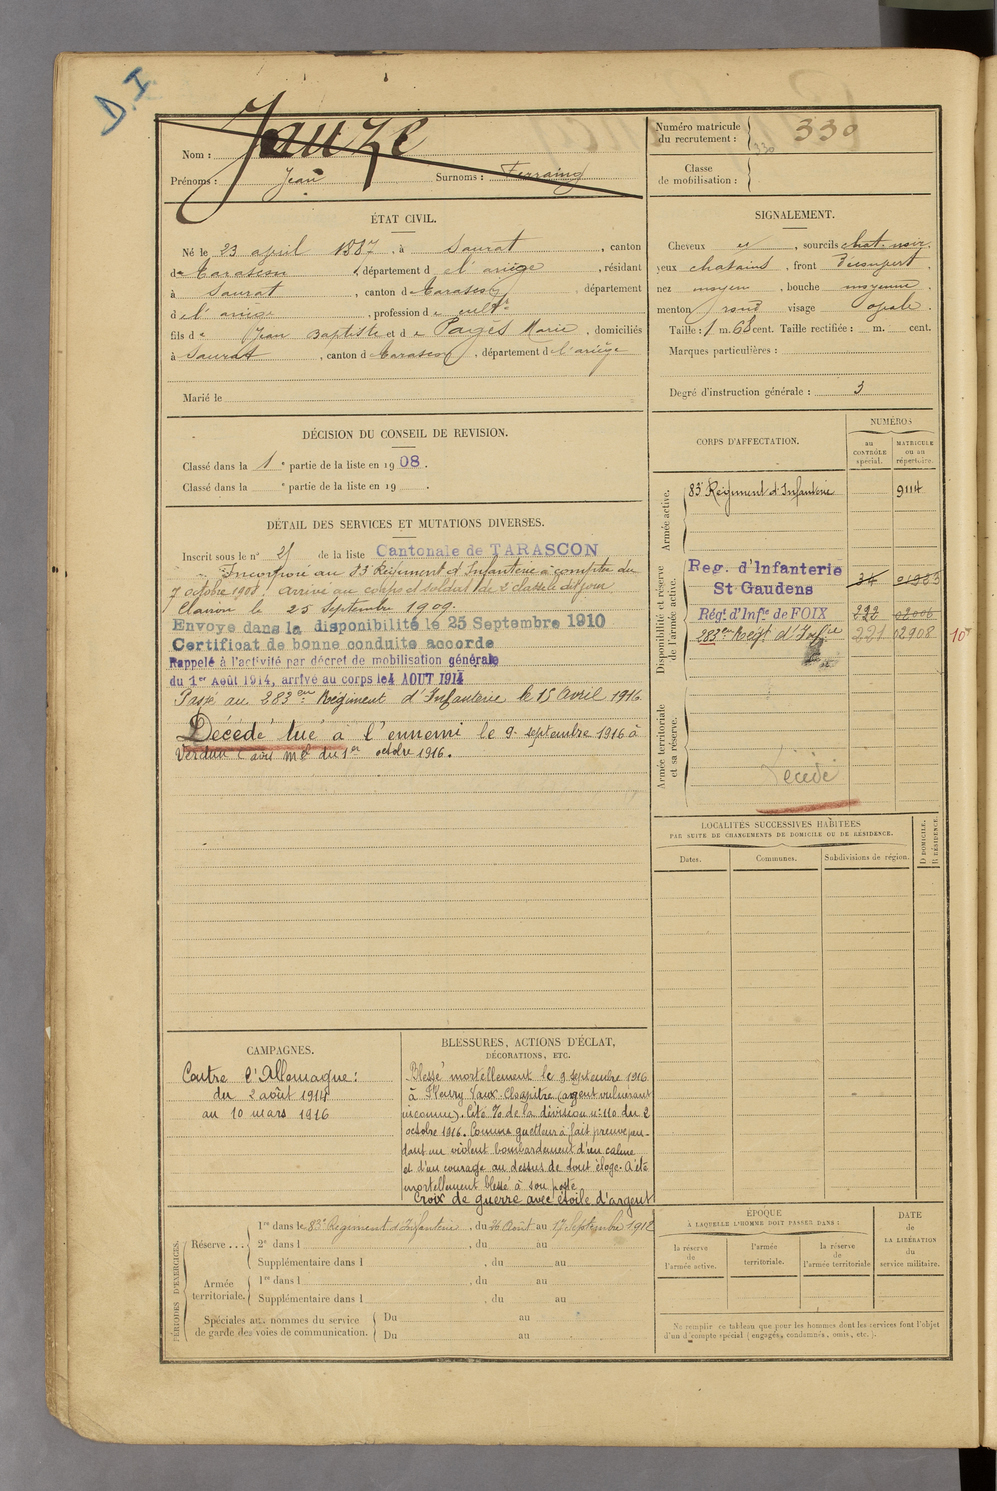 D.I
Nom : Jauze
Prénoms : Jean Surnoms : Ferraing
Numéro matricule du recrutement : 330
330
Classe de mobilisation :
ÉTAT CIVIL.
Né le 23 april 1887, à Saurat, canton
de Tarascon, département de l'ariège, résidant
à Saurat, canton de Tarascon, département
de l'ariège, profession de cultr
fils de Jean Baptiste et de Pagès Marie, domiciliés
à Saurat, canton de Tarascon, département de l'ariège
Marié le
SIGNALEMENT.
Cheveux et, sourcils chat. noir.
yeux chatains, front découvert,
nez moyen, bouche moyenne,
menton rond visage ovale.
Taille : 1 m. 68 cent. Taille rectifiée : m. cent.
Marques particulières :
Degré d'instruction générale : 3
DÉCISION DU CONSEIL DE REVISION.
Classé dans la 1e partie de la liste en 1908.
Classé dans la e partie de la liste en 19 .
DÉTAIL DES SERVICES ET MUTATIONS DIVERSES.
Inscrit sous le n° 21 de la liste Cantonale de TARASCON
Incorporé au 83e Régiment d'Infanterie à compter du
7 octobre 1908. Arrivé au corps et soldat de 2e classe le dit jour
Clairon le 25 Septembre 1909.
Envoyé dans la disponibilité le 25 Septembre 1910
Certificat de bonne conduite accordé
Rappelé à l'activité par décret de mobilisation générale
du 1er Août 1914, arrivé au corps le 4 AOUT 1914
Passé au 283eme Régiment d'Infanterie le 15 Avril 1916.
Décédé tué à l'ennemi le 9 septembre 1916 à
Verdun (avis mel du 1er octobre 1916.
CORPS D'AFFECTATION.
NUMÉROS
au CONTRÔLE spécial.
MATRICULE ou au répertoire.
Armée active.
83e Régiment d'Infanterie 9114
Disponibilité et réserve de l'armée active.
Reg. d'Infanterie
St Gaudens 34
Régt. d'Infie de FOIX 222 02006
283eme Régt d'Infie 221 02908
Armée territoriale et sa réserve.
Décédé
LOCALITÉS SUCCESSIVES HABITÉES
PAR SUITE DE CHANGEMENTS DE DOMICILE OU DE RÉSIDENCE.
Dates. Communes. Subdivisions de région. D DOMICILE. R RÉSIDENCE.
CAMPAGNES.
Contre l'Allemagne :
du 2 août 1914
au 10 mars 1916
BLESSURES, ACTIONS D'ÉCLAT,
DÉCORATIONS, ETC.
Blessé mortellement le 9 septembre 1916
à Fleury Vaux-Chapitre (agent vulnérant
inconnu). Cité % de la division n: 110 du 2
octobre 1916. Comme guetteur à fait preuve pen-
dant un violent bombardement d'un calme
et d'un courage au dessus de tout éloge. A été
mortellement blessé à son poste
Croix de guerre avec étoile d'argent
PÉRIODES D'EXERCICES.
Réserve ... 1re dans le 83e Régiment d'Infanterie, du 26 Août au 17 Septembre 1912
2e dans l , du au
Supplémentaire dans l , du au
Armée territoriale. 1re dans l , du au
Supplémentaire dans l , du au
Spéciales aux hommes du service de garde des voies de communication. Du au
Du au
ÉPOQUE
À LAQUELLE L'HOMME DOIT PASSER DANS :
la réserve de l'armée active.
l'armée territoriale.
la réserve de l'armée territoriale
DATE de LA LIBÉRATION du service militaire.
Ne remplir ce tableau que pour les hommes dont les services font l'objet
d'un décompte spécial (engagés, condamnés, omis, etc.).